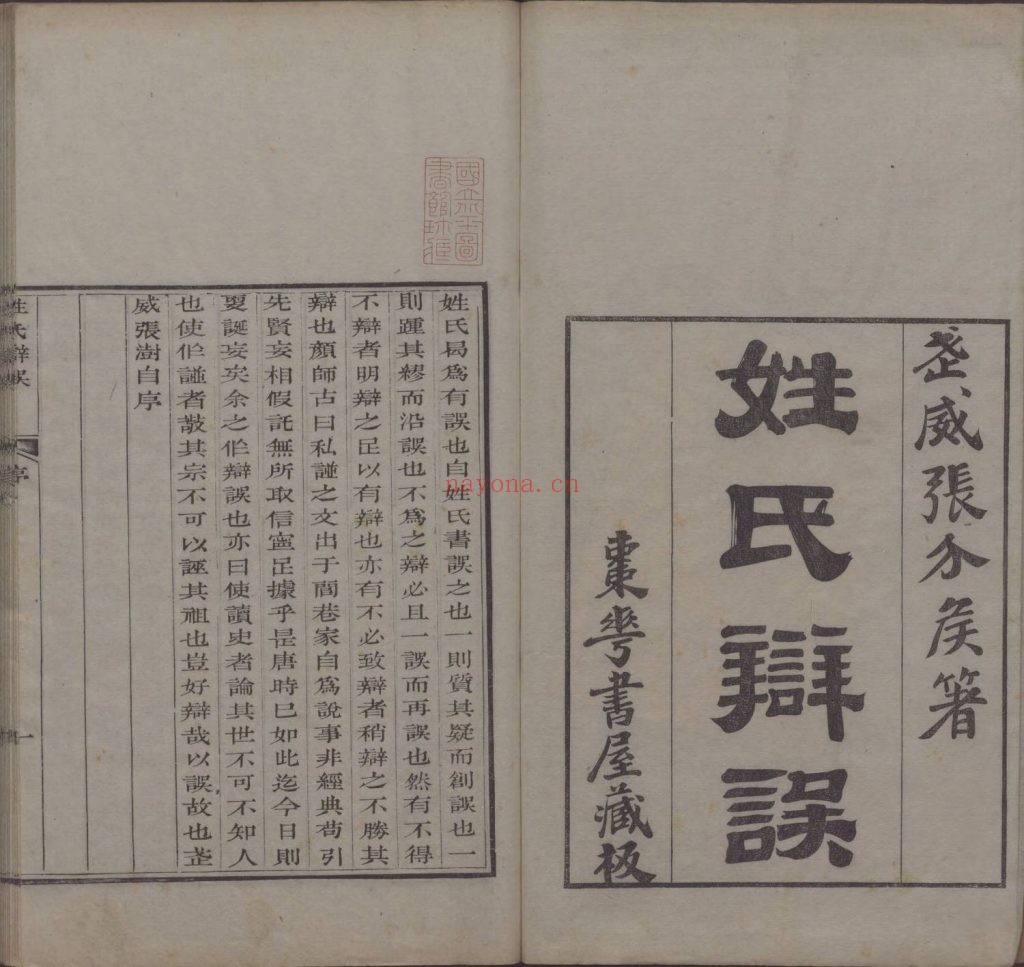 武威張介矦箸
姓氏辯誤
棗華書屋藏板
國立圖
書館珍藏
姓氏曷爲有誤也自姓氏書誤之也一則質其疑而創誤也一
則踵其繆而沿誤也不爲之辯必且一誤而再誤也然有不得
不辯者明辯之足以有辯也亦有不必致辯者稍辯之不勝其
辯也顏師古曰私譜之文出于閭巷家自爲說事非經典苟引
先賢妄相假託無所取信寍足據乎是唐時已如此迄今日則
夏誕妄矣余之作辯誤也亦曰使讀史者論其世不可不知人
也使作譜者敬其宗不可以誣其祖也豈好辯哉以誤故也武
威張澍自序
姓氏辯誤
序
一
nayona.cn